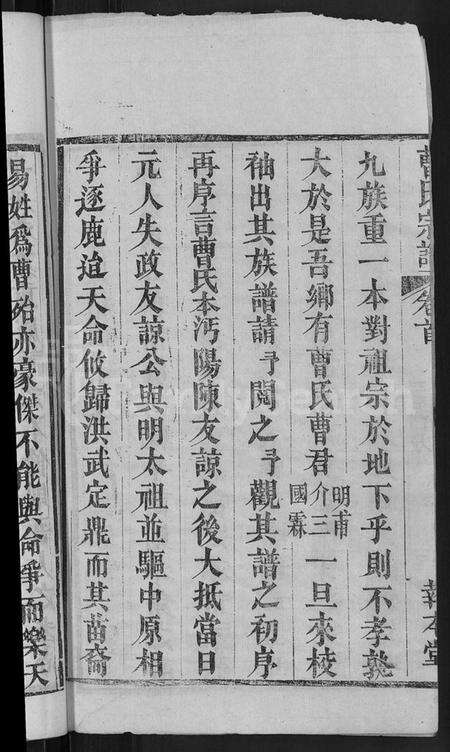 曹氏宗譜 卷首 敦本堂
九族重一本對祖宗於地下乎則不孝孰
大於是吾鄉有曹氏曹君明甫介三國霖一旦來校
袖出其族譜請予閱之予觀其譜之初序
再序言曹氏本沔陽陳友諒之後大抵當日
元人失政友諒公與明太祖並驅中原相
爭逐鹿迨天命攸歸洪武定鼎而其苗裔
易姓爲曹殆亦豪傑不能與命爭而樂天